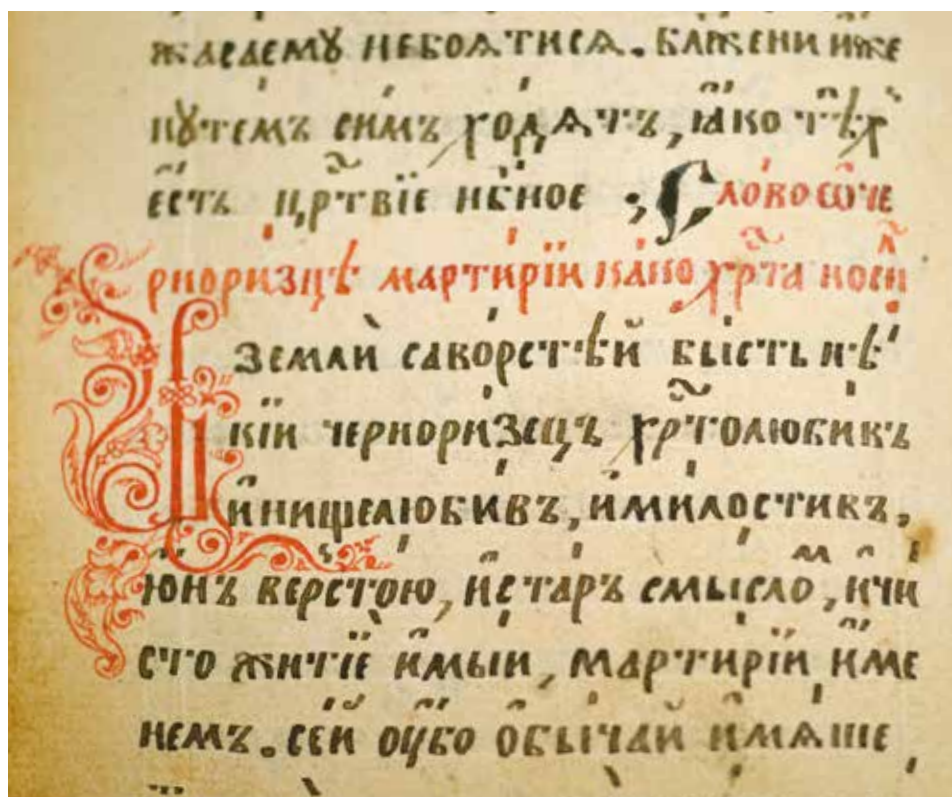 жасаему небоѧтисѧ. блжени иже
пꙋтемъ симъ ходѧтъ, ꙗко тѣх
есть црⷭ҇твїе нбⷭ҇ное ; Слово ѡ че
рноризцѣ мартирїи како хрⷭ҇та носи
земли саворстѣй бысть нѣ
кїи черноризецъ хрⷭ҇толюбивъ
и нищелюбивъ, и милостивъ,
юнъ верстою, и старъ смысло, и чи
сто житїе имыи, мартирїи име
немъ. сей оубо обычай имѧше